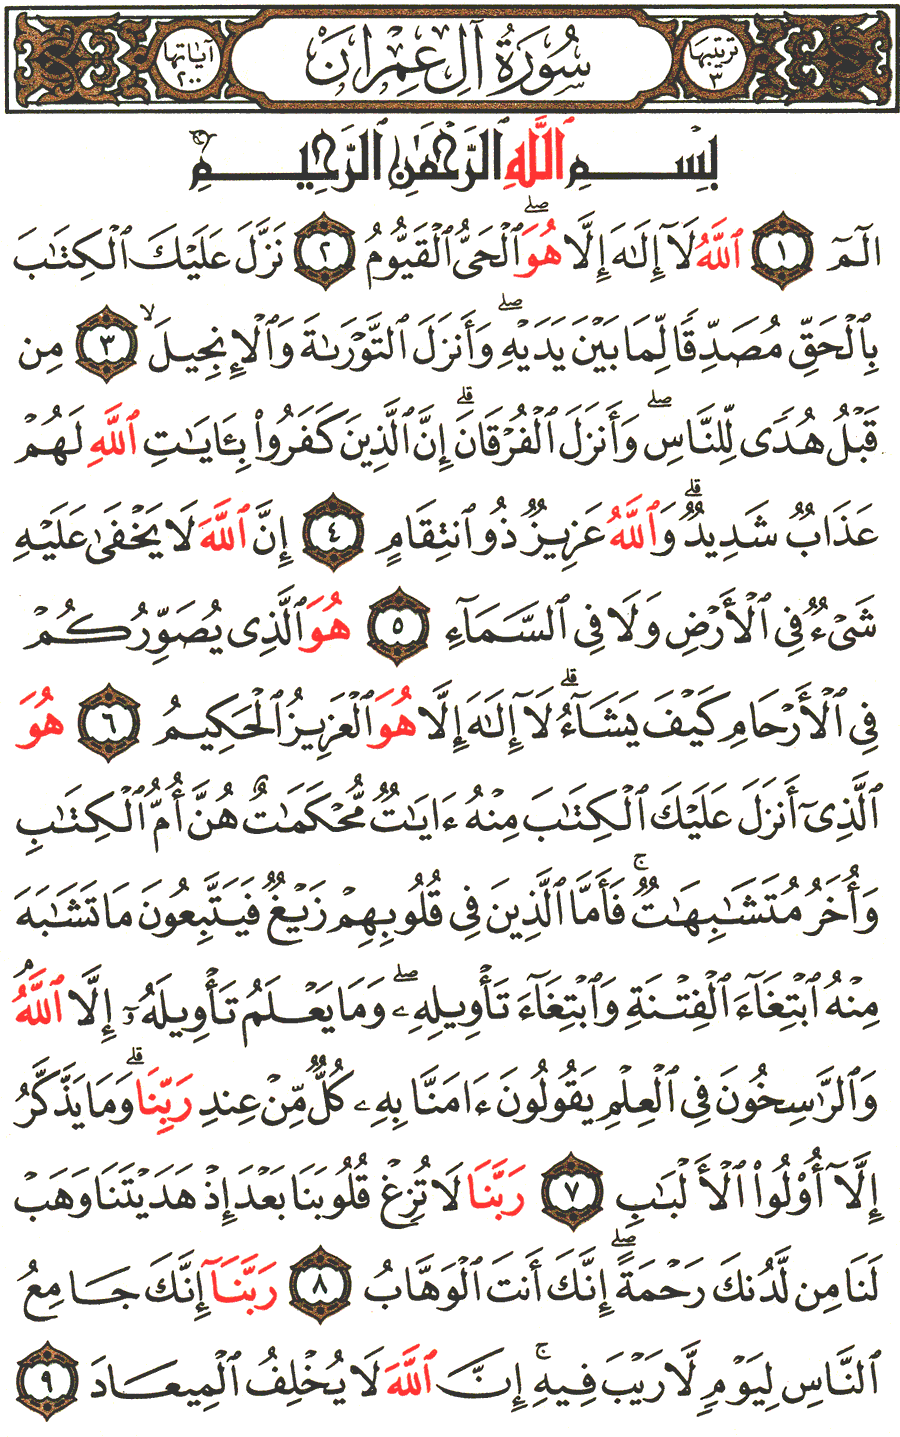 ترتيبها ٣ سُورَةُ آلِ عِمْرَان آيَاتها ٢٠٠
بِسْمِ ٱللَّهِ ٱلرَّحْمَٰنِ ٱلرَّحِيمِ
الٓمٓ ١ ٱللَّهُ لَآ إِلَٰهَ إِلَّا هُوَ ۖ ٱلْحَىُّ ٱلْقَيُّومُ ٢ نَزَّلَ عَلَيْكَ ٱلْكِتَٰبَ
بِٱلْحَقِّ مُصَدِّقًا لِّمَا بَيْنَ يَدَيْهِ ۖ وَأَنزَلَ ٱلتَّوْرَىٰةَ وَٱلْإِنجِيلَ ۙ ٣ مِن
قَبْلُ هُدًى لِّلنَّاسِ ۖ وَأَنزَلَ ٱلْفُرْقَانَ ۗ إِنَّ ٱلَّذِينَ كَفَرُوا۟ بِـَٔايَٰتِ ٱللَّهِ لَهُمْ
عَذَابٌ شَدِيدٌ ۗ وَٱللَّهُ عَزِيزٌ ذُو ٱنتِقَامٍ ٤ إِنَّ ٱللَّهَ لَا يَخْفَىٰ عَلَيْهِ
شَىْءٌ فِى ٱلْأَرْضِ وَلَا فِى ٱلسَّمَآءِ ٥ هُوَ ٱلَّذِى يُصَوِّرُكُمْ
فِى ٱلْأَرْحَامِ كَيْفَ يَشَآءُ ۗ لَآ إِلَٰهَ إِلَّا هُوَ ٱلْعَزِيزُ ٱلْحَكِيمُ ٦ هُوَ
ٱلَّذِىٓ أَنزَلَ عَلَيْكَ ٱلْكِتَٰبَ مِنْهُ ءَايَٰتٌ مُّحْكَمَٰتٌ هُنَّ أُمُّ ٱلْكِتَٰبِ
وَأُخَرُ مُتَشَٰبِهَٰتٌ ۚ فَأَمَّا ٱلَّذِينَ فِى قُلُوبِهِمْ زَيْغٌ فَيَتَّبِعُونَ مَا تَشَٰبَهَ
مِنْهُ ٱبْتِغَآءَ ٱلْفِتْنَةِ وَٱبْتِغَآءَ تَأْوِيلِهِۦ ۖ وَمَا يَعْلَمُ تَأْوِيلَهُۥٓ إِلَّا ٱللَّهُ ۗ
وَٱلرَّٰسِخُونَ فِى ٱلْعِلْمِ يَقُولُونَ ءَامَنَّا بِهِۦ كُلٌّ مِّنْ عِندِ رَبِّنَا ۗ وَمَا يَذَّكَّرُ
إِلَّآ أُو۟لُوا۟ ٱلْأَلْبَٰبِ ٧ رَبَّنَا لَا تُزِغْ قُلُوبَنَا بَعْدَ إِذْ هَدَيْتَنَا وَهَبْ
لَنَا مِن لَّدُنكَ رَحْمَةً ۖ إِنَّكَ أَنتَ ٱلْوَهَّابُ ٨ رَبَّنَآ إِنَّكَ جَامِعُ
ٱلنَّاسِ لِيَوْمٍ لَّا رَيْبَ فِيهِ ۚ إِنَّ ٱللَّهَ لَا يُخْلِفُ ٱلْمِيعَادَ ٩